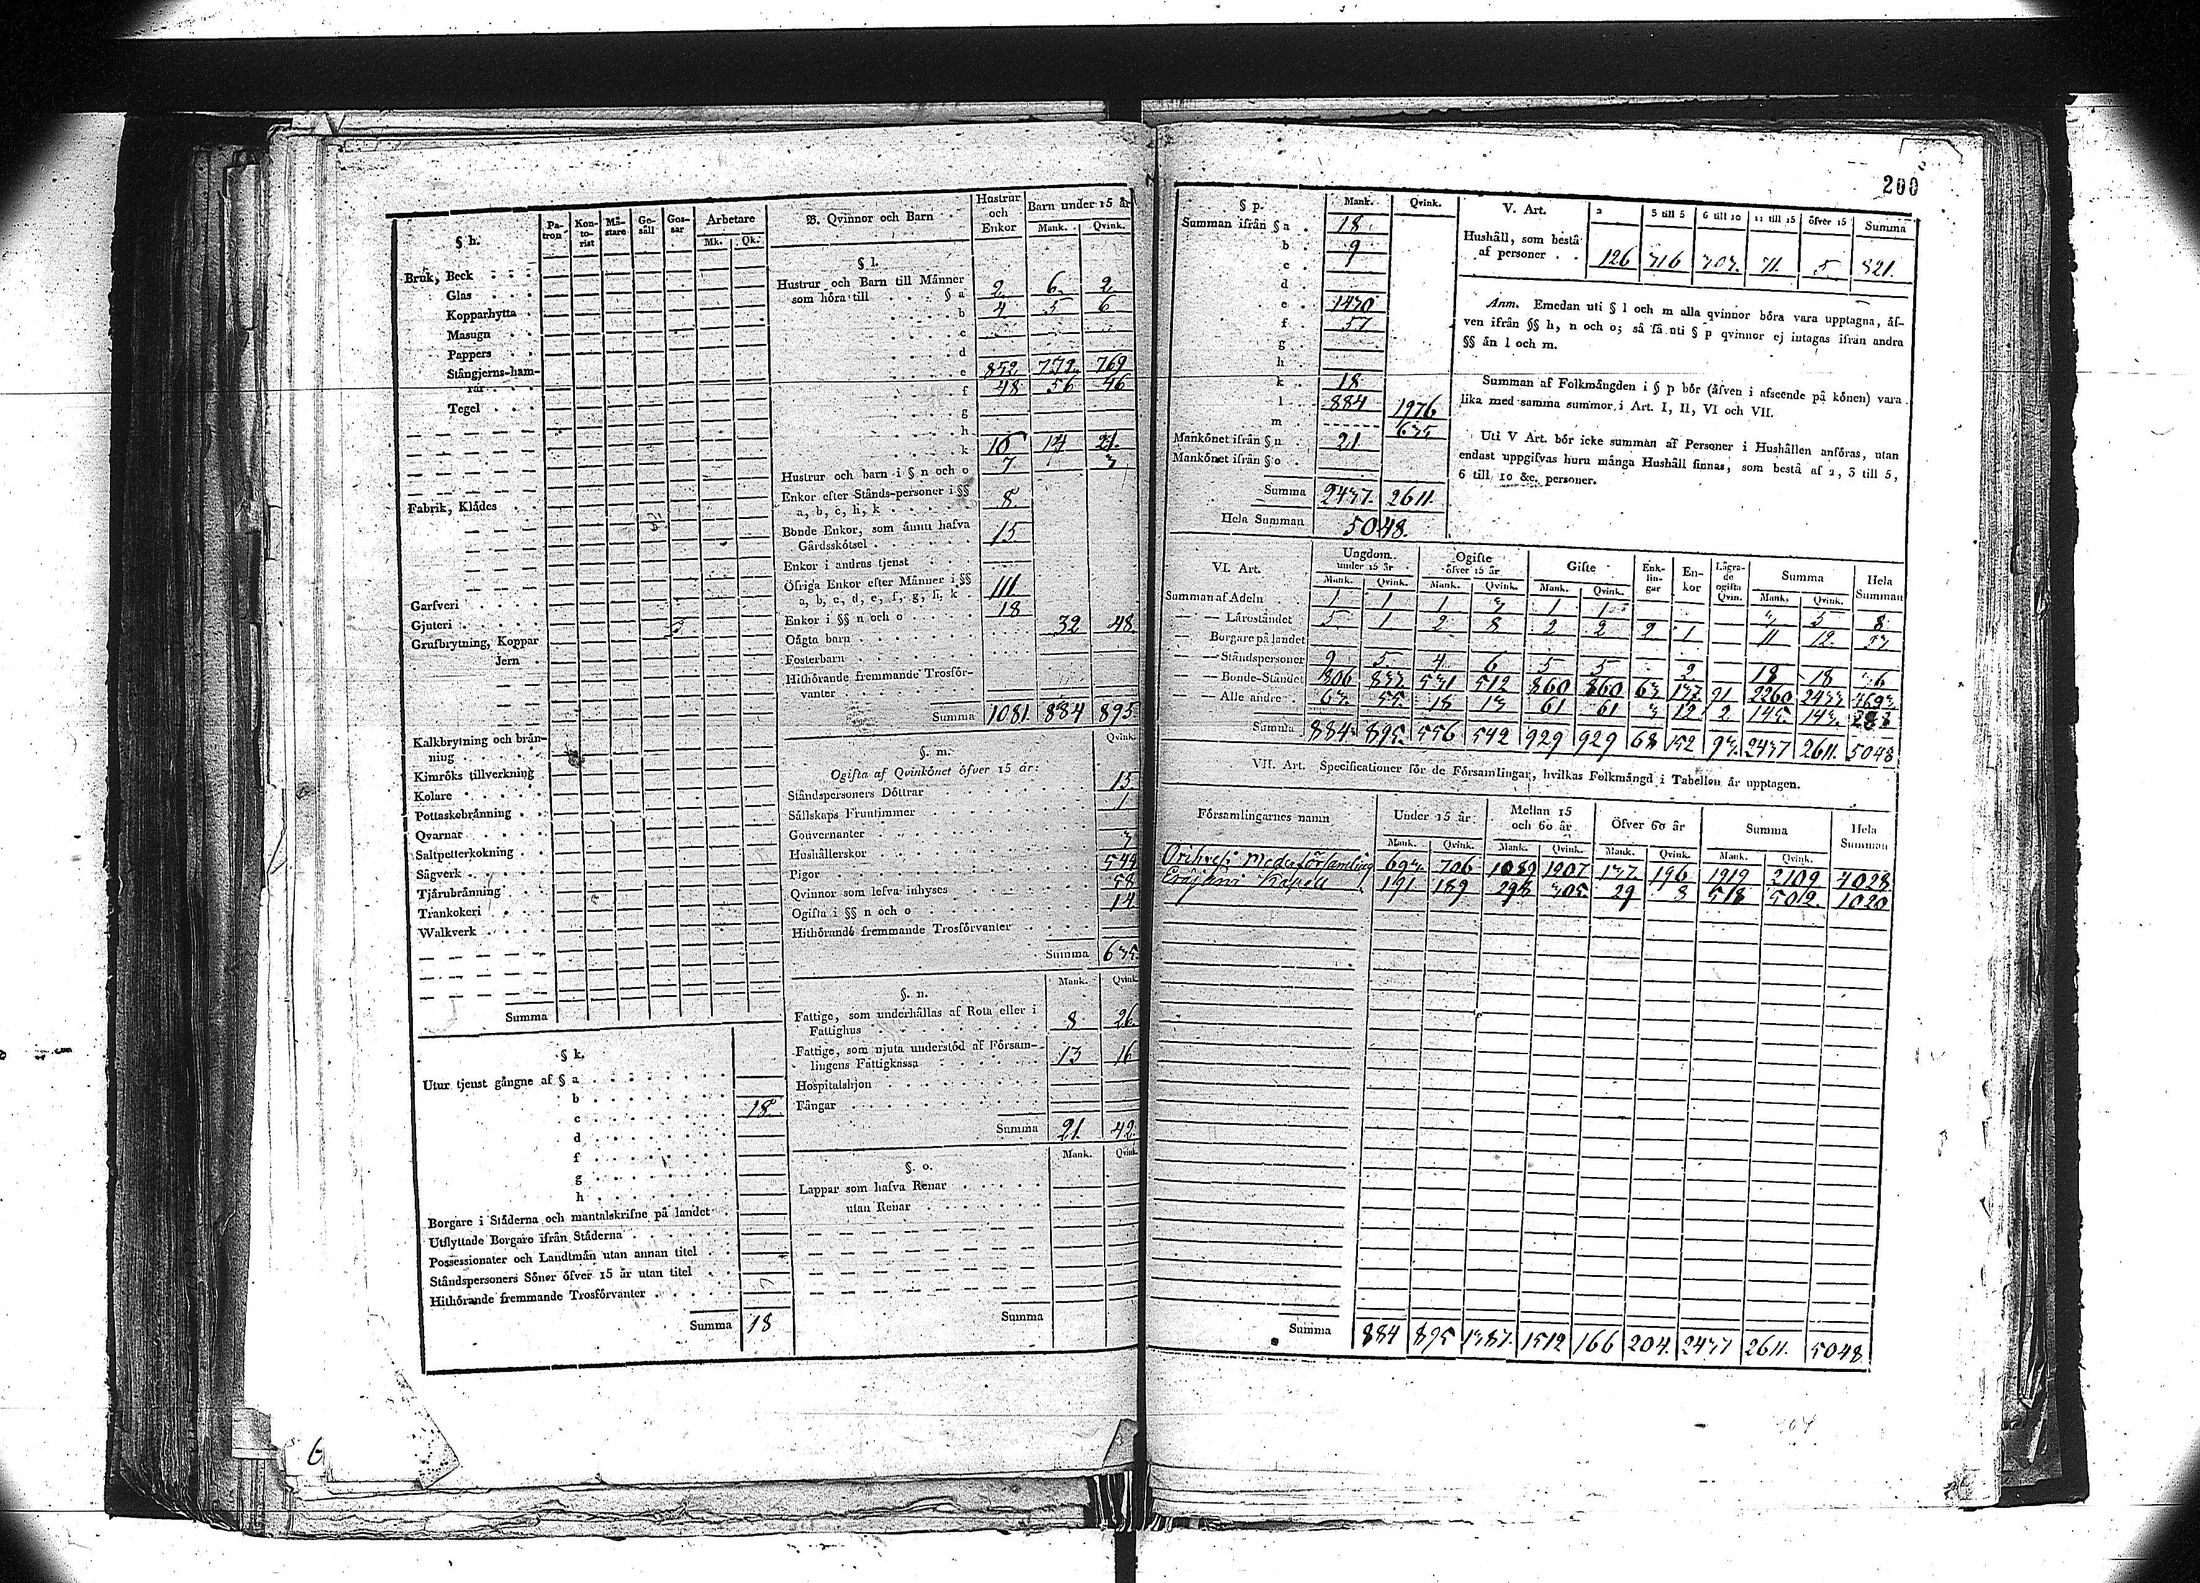 200
§ h.
Pa-
tron
Kon-
to-
rist
Mä-
stare
Ge-
säll
Gos-
sar
Arbetare
Mk. Qk.
Bruk, Beck
Glas
Kopparhytta
Masugn
Pappers
Stångjerns-ham-
rar
Tegel
Fabrik, Klädes
Garfveri
Gjuteri
Grufbrytning, Koppar
Jern
Kalkbrytning och brän-
ning
Kimröks tillverkning
Kolare
Pottaskebränning
Qvarnar
Saltpetterkokning
Sågverk
Tjärubränning
Trankokeri
Walkverk
Summa
§ k.
Utur tjenst gångne af § a
b
c 18.
d
f
g
h
Borgare i Städerna och mantalskrifne på landet
Utflyttade Borgare ifrån Städerna
Possessionater och Landtmän utan annan titel
Ståndspersoners Söner öfver 15 år utan titel
Hithörande fremmande Trosförvanter
Summa 18
B. Qvinnor och Barn
Hustrur
och
Enkor
Barn under 15 år
Mank. Qvink.
§ l.
Hustrur och Barn till Männer
som höra till § a 2 6 2
b 4 5 6
c
d
e 852 772 769
f 48 56 46
g
h
k 16 14 21
Hustrur och barn i § n och o 7
Enkor efter Stånds-personer i §§
a, b, c, h, k 8
Bonde Enkor, som ännu hafva
Gårdsskötsel 15
Enkor i andras tjenst
Öfriga Enkor efter Männer i §§
a, b, c, d, e, f, g, h, k 111
Enkor i §§ n och o 18
Oägta barn 32 48
Fosterbarn
Hithörande fremmande Trosför-
vanter
Summa 1081 884 895
§. m.
Qvink.
Ogifta af Qvinkönet öfver 15 år:
Ståndspersoners Döttrar 15
Sällskaps Fruntimmer 1
Gouvernanter
Hushållerskor 3
Pigor 544
Qvinnor som lefva inhyses 58
Ogifta i §§ n och o 14
Hithörande fremmande Trosförvanter
Summa 635
§. n.
Mank. Qvink.
Fattige, som underhållas af Rota eller i
Fattighus 8 26
Fattige, som njuta understöd af Försam-
lingens Fattigkassa 13 16
Hospitalshjon
Fångar
Summa 21 42
§. o.
Mank. Qvink.
Lappar som hafva Renar
utan Renar
Summa
§ p.
Mank. Qvink.
Summan ifrån § a 18
b 9
c
d
e 1430
f 57
g
h
k 18
l 884 1976
m 635
Mankönet ifrån § n 21
Mankönet ifrån § o
Summa 2437. 2611.
Hela Summan 5048.
V. Art. 2 3 till 5 6 till 10 11 till 15 öfver 15 Summa
Hushåll, som bestå
af personer 126 316 303 71 5 821.
Anm. Emedan uti § l och m alla qvinnor böra vara upptagna, äf-
ven ifrån §§ h, n och o; så få uti § p qvinnor ej intagas ifrån andra
§§ än l och m.
Summan af Folkmängden i § p bör (äfven i afseende på könen) vara
lika med samma summor i Art. I, II, VI och VII.
Uti V Art. bör icke summan af Personer i Hushållen anföras, utan
endast uppgifvas huru många Hushåll finnas, som bestå af 2, 3 till 5,
6 till 10 &c. personer.
VI. Art.
Ungdom
under 15 år
Ogifte
öfver 15 år
Gifte
Enk-
lin-
gar
En-
kor
Lägra-
de
ogifta
Qvin.
Summa
Hela
Summan
Mank. Qvink. Mank. Qvink. Mank. Qvink. Mank. Qvink.
Summan af Adeln 1 1 1 3 1 1 3 5 8
— — Läroståndet 5 1 2 8 2 2 2 1 11 12 23
— Borgare på landet
— — Ståndspersoner 9 5 4 6 5 5 2 18 18 36
— — Bonde-Ståndet 806 833 531 512 860 860 63 137 91 2260 2433 4693
— — Alle andre 63 55 18 13 61 61 3 12 2 145 143 288
Summa 884 895 556 542 929 929 68 152 93 2437 2611 5048
VII. Art. Specificationer för de Församlingar, hvilkas Folkmängd i Tabellen är upptagen.
Församlingarnes namn
Under 15 år
Mellan 15
och 60 år
Öfver 60 år
Summa
Hela
Summan
Mank. Qvink. Mank. Qvink. Mank. Qvink. Mank. Qvink.
Orihvesi Moderförsamling 693 706 1089 1207 137 196 1919 2109 4028
Eräjärvi Kapell 191 189 298 305 29 8 518 502 1020
Summa 884 895 1387 1512 166 204 2437 2611 5048
6